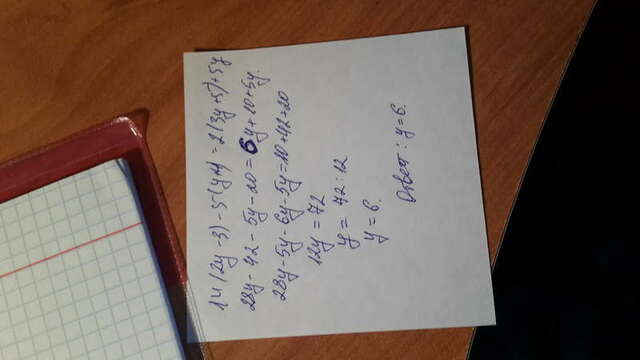 14(2y-3)-5(y+4)=2(3y+5)+5y
28y-42-5y-20=6y+10+5y.
28y-5y-6y-5y=10+42+20
12y=72
y=72:12
y=6.
Ответ: y=6.